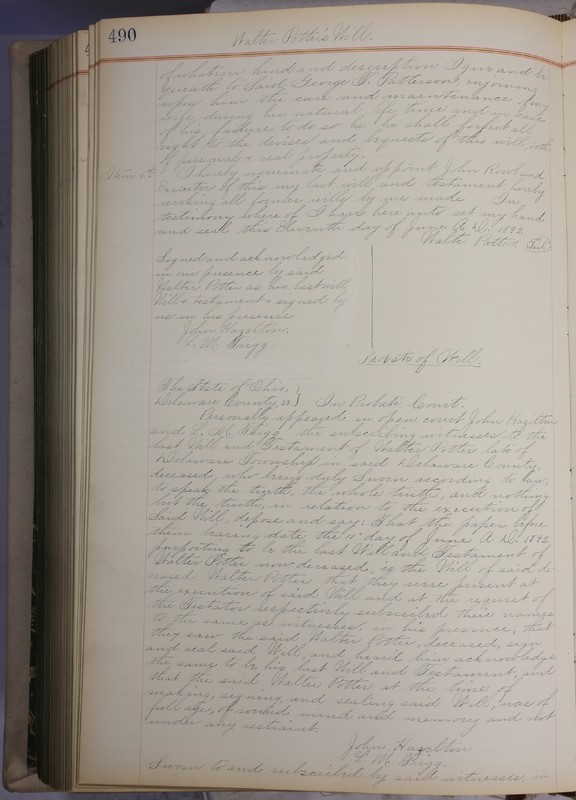 490
Walter Potter's Will.
of whation kind and description I give and be
queath to Said, George F. Patterson, enjoining
upon him the care and maintenance of my
wife during her natural life time and in case
of his failure to do so he shall forfeit all
right to the devises and bequests of this will, both
of personal & real property.
Item
I hereby nominate and appoint John Rowland
Executor of this my last will and testament hereby
revoking all former wills by me made In
testimony where of I have here unto set my hand
and seal this Eleventh day of June A. D. 1892.
Walter Potter
Signed and acknowledged
in our presence by said
Walter Potter as his last will
Will & testament & signed by
us in his presence
John Hazelton.
L. M. Trigg
Probate of Will.
The State of Ohio,
Delaware County, ss. } In Probate Court.
Personally appeared in open court John Hazelton
and L. M. Trigg the subscribing witnesses to the
last Will and Testament of Walter Potter late of
Delaware Township in said Delaware County,
deceased, who being duly Sworn according to law,
to speak the truth, the whole truth, and nothing
but the truth, in relation to the execution of
Said Will, depose and say: That the paper before
them bearing date, the 11" day of June A. D. 1892
purporting to be the last Will and Testament of
Walter Potter now deceased, is the Will of said de-
ceased Walter Potter that they were present at
the execution of said Will and at the request of
the Testator respectively subscribed their names
to the same as witnesses, in his presence, that
they saw the said Walter Potter, deceased, sign
and seal said, Will, and heard him acknowledge
the same to be his last Will and Testament, and
that the said Walter Potter at the time of
making, signing, and sealing said Will, was of
full age, of sound mind and memory and not
under any restraint.
John Hazelton
L. M. Trigg.
Sworn to and subscribed by said witnesses, in